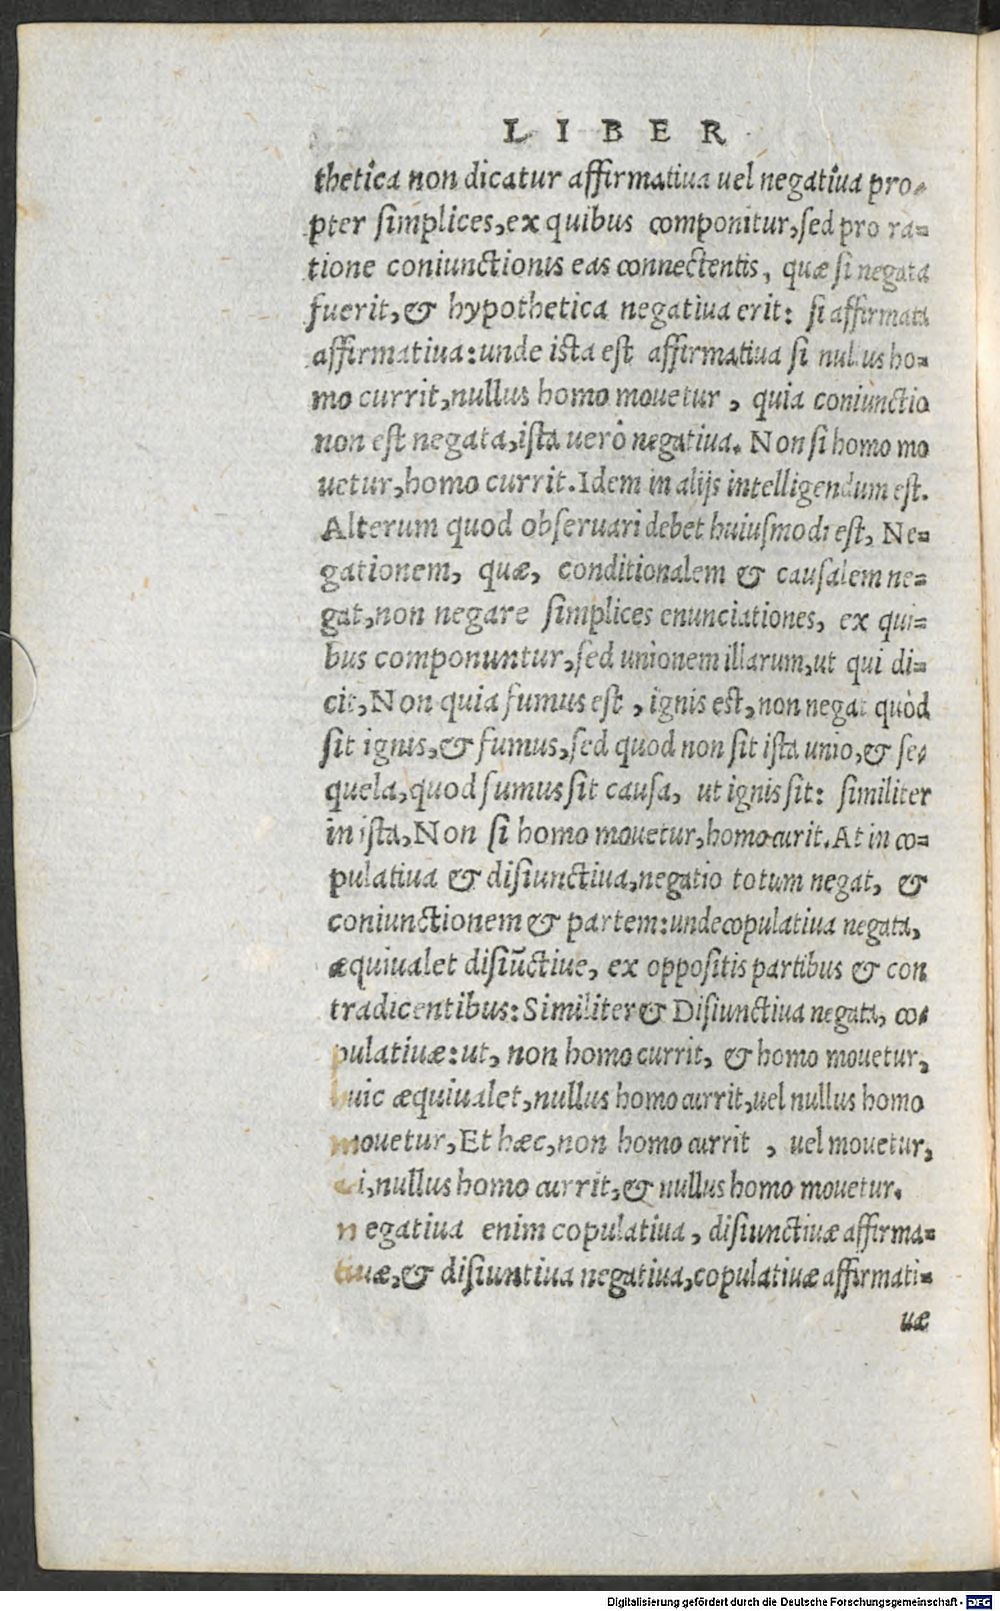 LIBER
thetica non dicatur affirmatiua uel negatiua pro-
pter simplices, ex quibus componitur, sed pro ra=
tione coniunctionis eas connectentis, quæ si negata
fuerit, & hypothetica negatiua erit: si affirmata
affirmatiua: unde ista est affirmatiua si nullus ho=
mo currit, nullus homo mouetur, quia coniunctio
non est negata, ista uerò negatiua. Non si homo mo
uetur, homo currit. Idem in alijs intelligendum est.
Alterum quod obseruari debet huiusmodi est, Ne=
gationem, quæ, conditionalem & causalem ne=
gat, non negare simplices enunciationes, ex qui=
bus componuntur, sed unionem illarum, ut qui di=
cit, Non quia fumus est, ignis est, non negat quòd
sit ignis, & fumus, sed quod non sit ista unio, & se-
quela, quod fumus sit causa, ut ignis sit: similiter
in ista, Non si homo mouetur, homo curit. At in co=
pulatiua & disiunctiua, negatio totum negat, &
coniunctionem & partem: unde copulatiua negata,
æquiualet disiūctiue, ex oppositis partibus & con
tradicentibus: Similiter & Disiunctiua negata, co-
pulatiuæ: ut, non homo currit, & homo mouetur,
huic æquiualet, nullus homo currit, uel nullus homo
mouetur, Et hæc, non homo currit, uel mouetur,
ei, nullus homo currit, & nullus homo mouetur.
negatiua enim copulatiua, disiunctiuæ affirma=
tiuæ, & disiuntiua negatiua, copulatiuæ affirmati=
uæ
Digitalisierung gefördert durch die Deutsche Forschungsgemeinschaft - DFG